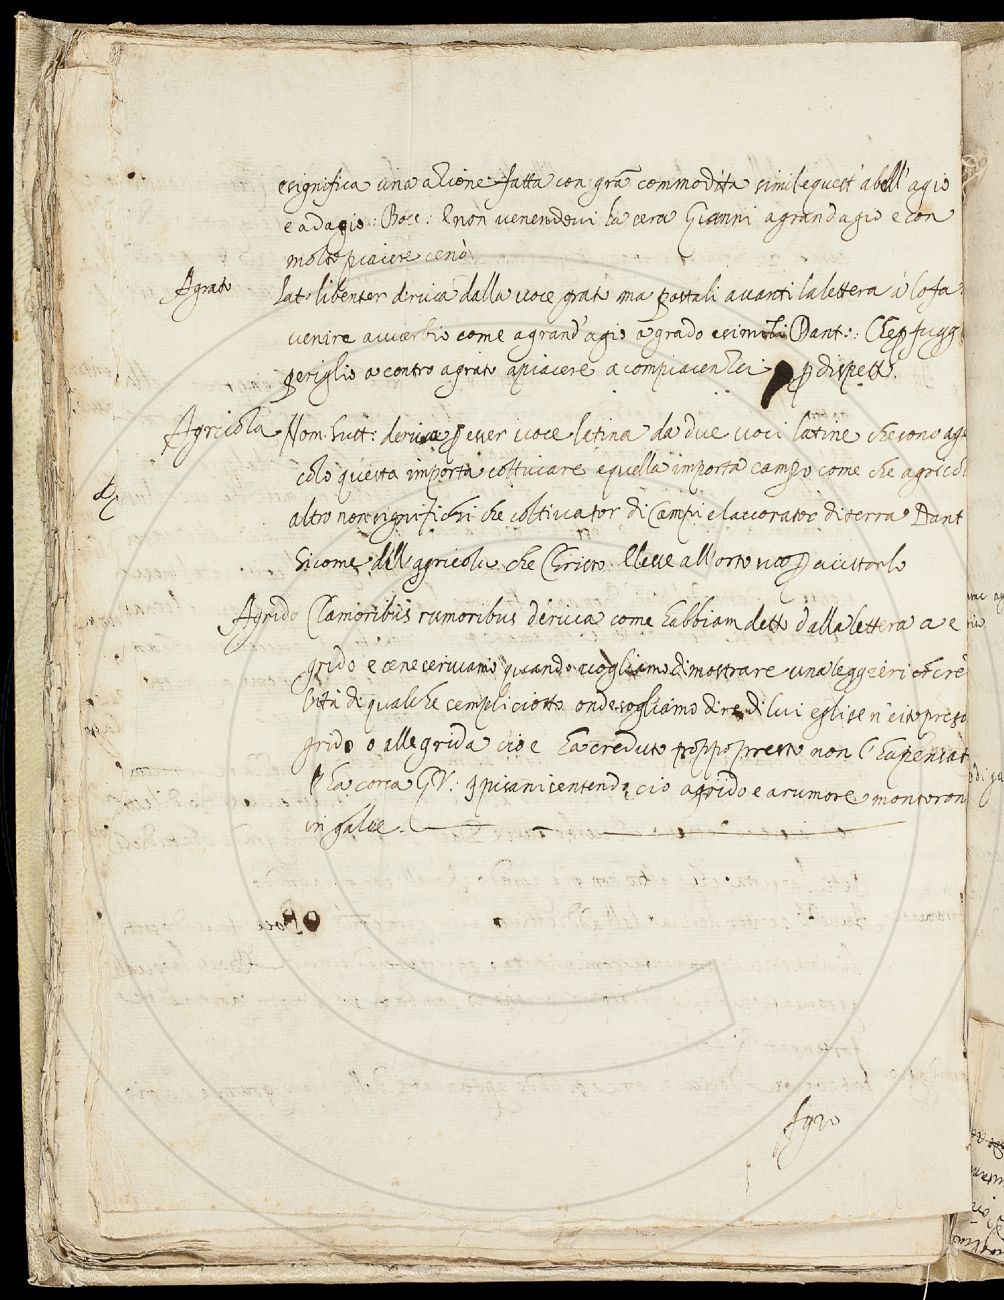 e significa una azione fatta con grã commodità simile quest' a bell' agio
e adagio: Bocc: E non venendovi la cera Gianni a grand agio e con
molto piacere cenò
Agrato Lat. libenter deriva dalla voce grato ma postali avanti la lettera à lo fa
venire avverbio come a grand' agio a grado e simili Dant:: Che ꝑ fugg
periglio a contro a grato a piacere a compiacenza ꝑ dispett.
Agricola Nom. sust: deriva ꝑ esser voce latina da due voci latine che sono ag
colo questa importa coltivare e quella importa campo come che agricol
altro non significhi che coltivator di Campi e lavorator di terra Dant
Sicome dell' agricola che Christo Elesse all' orto suo ꝑ aiutarlo
Agrido Clamoribus rumoribus deriva come habbiam detto dalla lettera a e
grido e ce ne serviamo quando vogliamo dimostrare una leggieri
di qualche sempliciotto onde sogliamo dire di lui egli se n' è ito preso
grido o alle grida cioè ha creduto troppo presto non l' ha pensat
la cosa GV: i pisani sentendo ciò a grido e a rumore montoron
in galee.
Agro